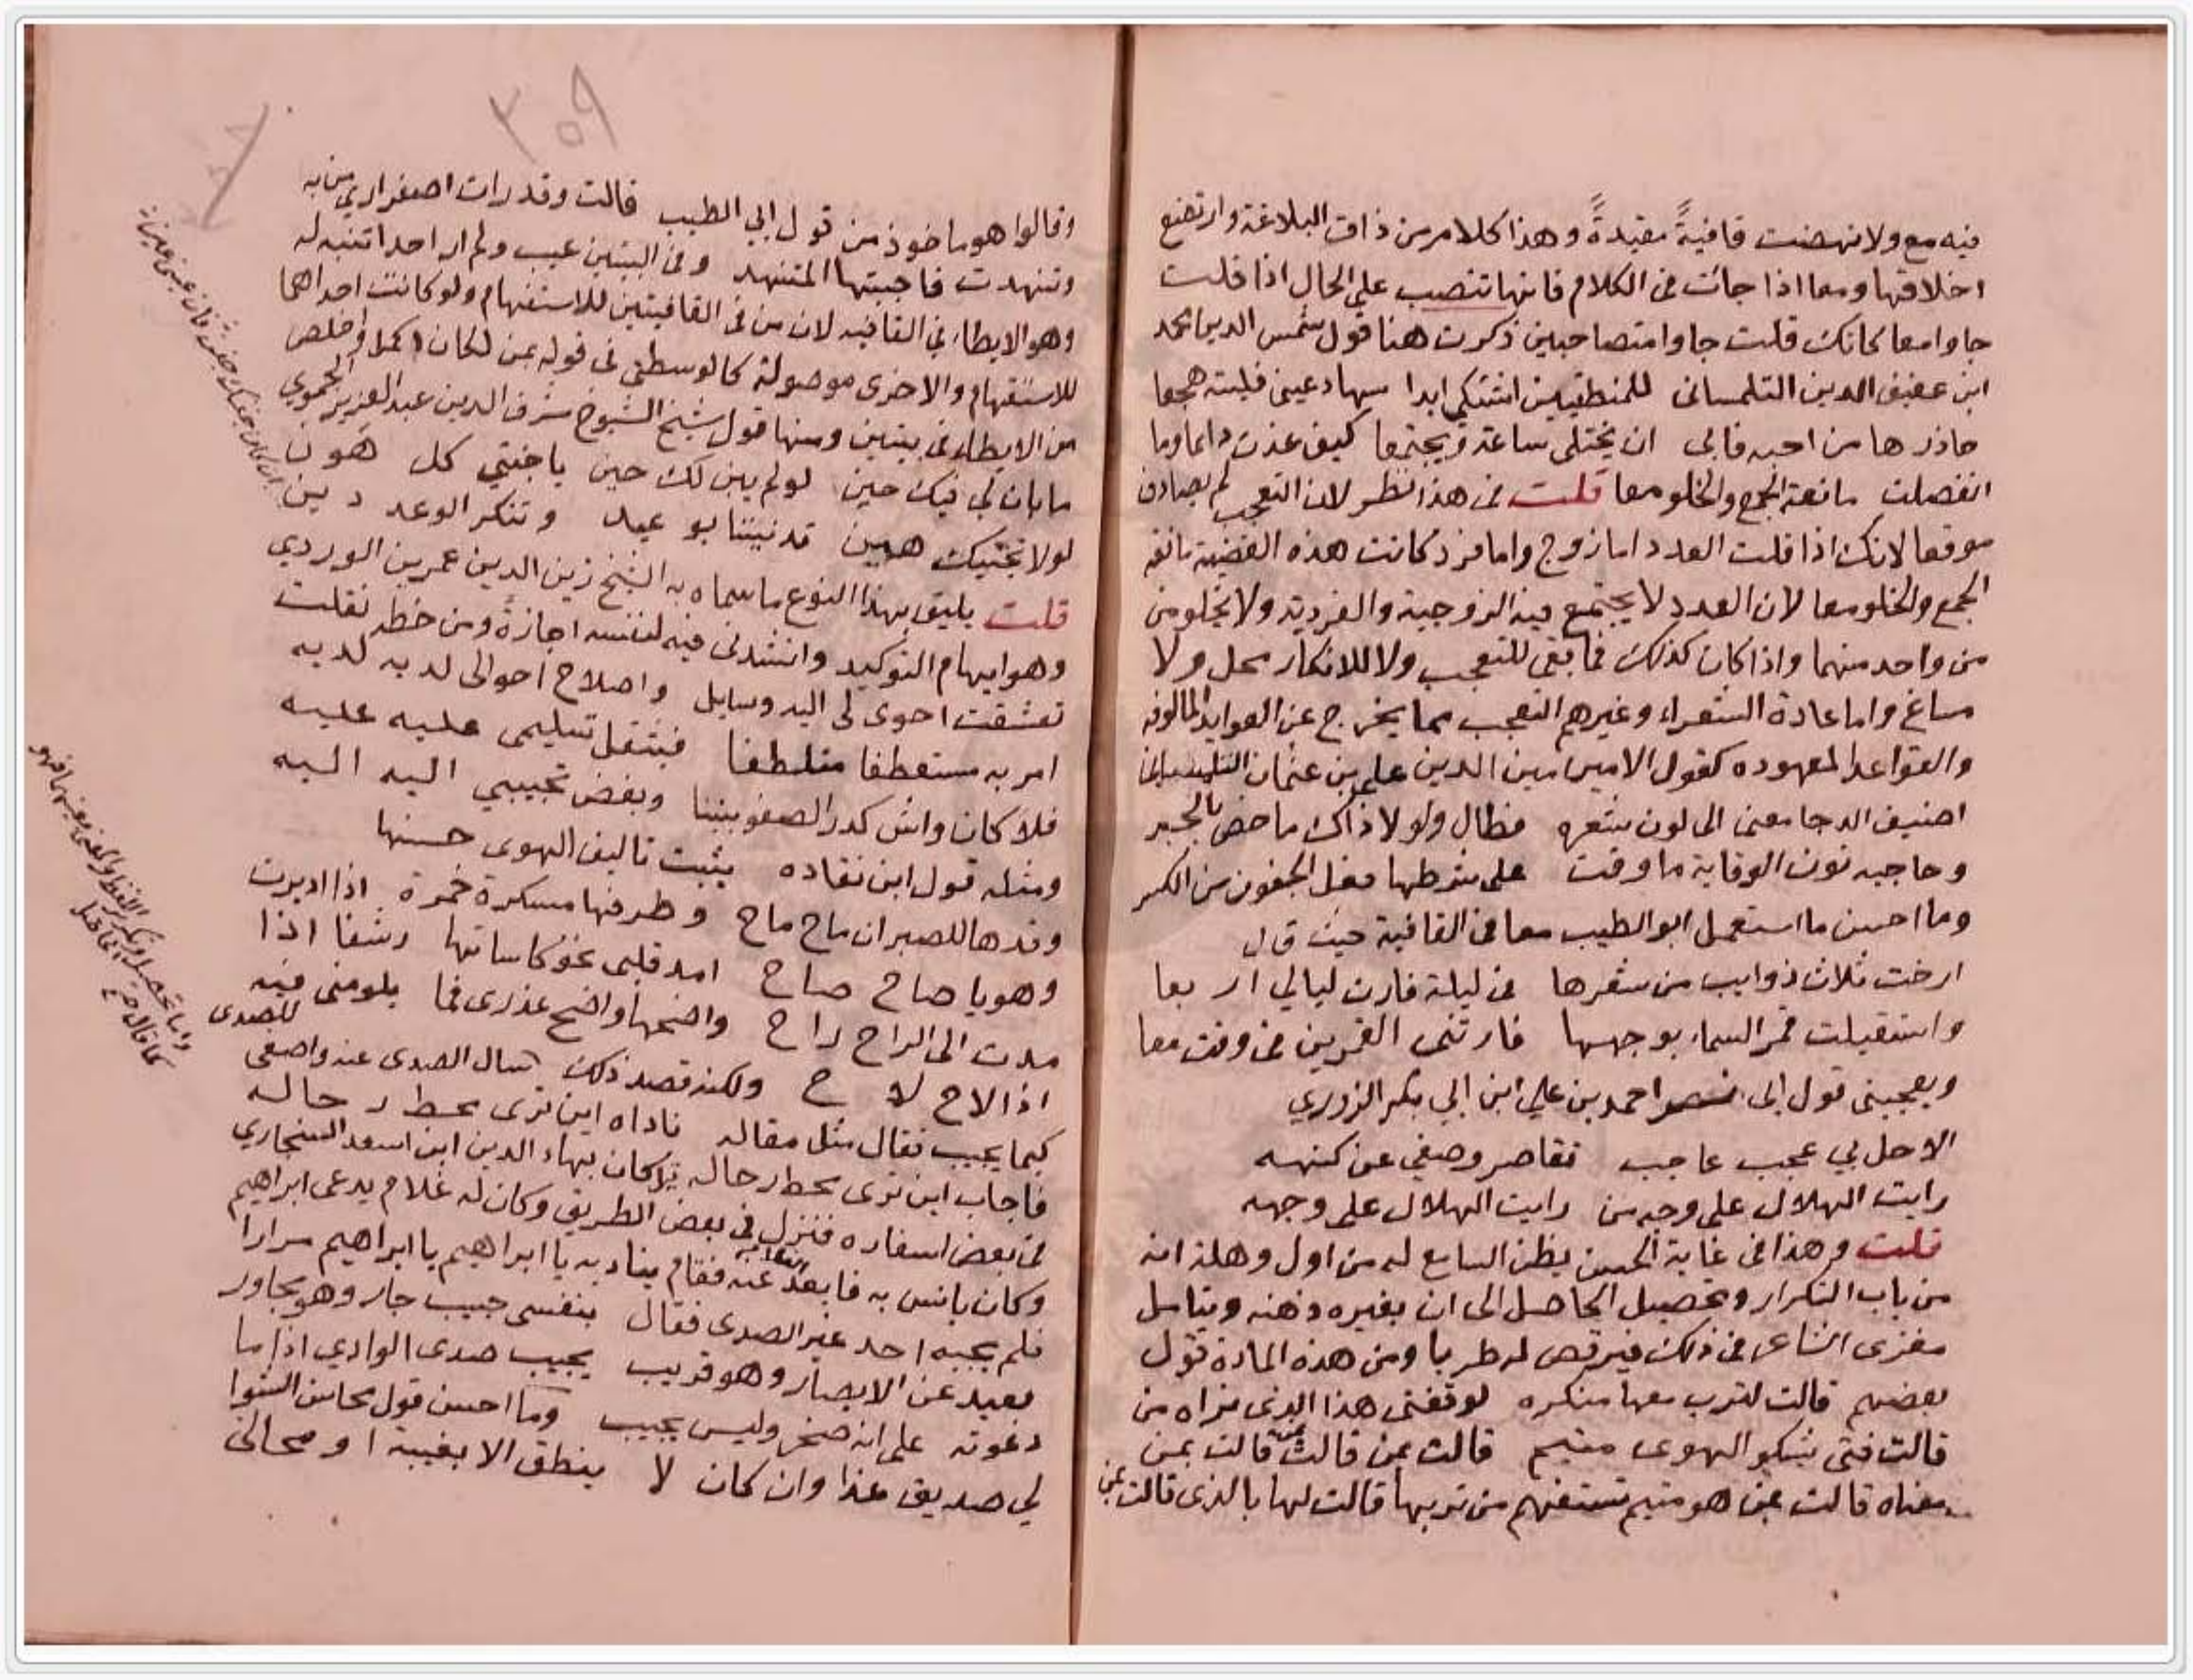 فيه مع ولا نهضت قافيةً مقيدةً وهذا كلام من ذاق البلاغة وارتضع
اخلافها ومعا اذا جائت في الكلام فانها تنتصب على الحال اذا قلت
جاوا معا كانك قلت جاوا متصاحبين ذكرت هنا قول شمس الدين محمد
ابن عفيف الدين التلمساني للمنطقيين اشتكي ابدا سهاد عيني فليته هجعا
حاذرها من احبه فابى ان يختلى ساعة ويجتمعا كيف غدت دايما وما
انفصلت مانعة الجمع والخلو معا قلت في هذا نظر لان التعجب لم يصادف
موقعا لانك اذا قلت العدد اما زوج واما فرد كانت هذه القضية مانعة
الجمع والخلو معا لان العدد لا يجتمع فيه الزوجية والفردية ولا يخلو من
من واحد منهما واذا كان كذلك فما بقي للتعجب ولا للانكار محل ولا
مساغ واما عادة الشعراء وغيرهم التعجب مما يخرج عن العوايد المالوفه
والقواعد المعهوده كقول الامير امين الدين علي بن عثمان السليماني
اضيف الدجا معنى الى لون شعره فطال ولولا ذاك ما خص بالجر
وحاجبه نون الوقاية ما وقت على شرطها فعل الجفون من الكسر
وما احسن ما استعمل ابو الطيب معا في القافية حيث قال
ارخت ثلاث ذوايب من شعرها في ليلة فارت ليالي اربعا
واستقبلت قمر السماء بوجهها فارتني القمرين في وقت معا
ويعجبني قول ابي نصر احمد بن علي ابن ابي بكر الزوزني
الا حل بي عجب عاجب تقاصر وصفي عن كنهه
رايت الهلال على وجه من رايت الهلال على وجهه
قلت وهذا في غاية الحسن يظن السامع له من اول وهلة انه
من باب التكرار وتحصيل الحاصل الى ان يغيره ذهنه ويتامل
مغزى الشاعر في ذلك فيرقص له طربا ومن هذه المادة قول
بعضهم قالت لترب معها منكره لوقفتي هذا الذي نراه من
قالت فتى يشكو الهوى متيم قالت بمن قالت بمن قالت بمن
معناه قالت بمن هو متيم تستفهم من تربها قالت لها بالذي قالت بمن
٣٥٩
وقالوا هو ماخوذ من قول ابي الطيب قالت وقد رات اصفراري من به
وتنهدت فاجبتها المتنهد وفي البيتين عيب ولم ار احدا تنبه له
وهو الايطاء في القافيه لان من في القافيتين للاستفهام ولو كانت احداهما
للاستفهام والاخرى موصولة كالوسطى في قوله بمن لكان اكمل واخلص
من الايطاء في بيتين ومنها قول شيخ الشيوخ شرف الدين عبد العزيز الحموي
ما بان لي فيك حين لو لم يبن لك حين يا جنتي كل هون
لولا تجنيك هين قد نيتنا بوعيد وتنكر الوعد دين
قلت يليق بهذا النوع ما سماه به الشيخ زين الدين عمر بن الوردي
وهو ايهام التوكيد وانشدني فيه لنفسه اجازة ومن خطه نقلت
تعشقت احوى لي اليه وسايل واصلاح احوالي لديه لديه
امر به مستعطفا متلطفا فيثقل تسليمي عليه عليه
فلا كان واش كدر الصفو بيننا وبغض تحبيبي اليه اليه
ومثله قول ابن نقاده يثبت تاليف الهوى حسنها
وقدها للصبر ان ماح ماح وطرفها مسكرة خمرة اذا اديرت
وهو يا صاح صاح امد قلبي نحو كاساتها رشفا اذا
مدت الى الراح راح واضحها واضح عذري فما يلومني فيه
اذا لاح لاح ولكنه قصد ذلك سال الصدى عنه واصغى للصدى
كيما يجيب فقال مثل مقاله ناداه اين ترى محط رحاله
فاجاب اين ترى محط رحاله كان بهاء الدين ابن اسعد السنجاري
في بعض اسفاره فنزل في بعض الطريق وكان له غلام يدعى ابراهيم
وكان يانس به فابعد عنه فقام يناديه يا ابراهيم يا ابراهيم مرارا
فلم يجبه احد غير الصدى فقال بنفسي حبيب جار وهو مجاور
بعيد عن الابصار وهو قريب يجيب صدى الوادي اذا ما
دعوته على انه صخر وليس يجيب وما احسن قول محاسن الشوا
لي صديق غدا وان كان لا ينطق الا بغيبة او محالي